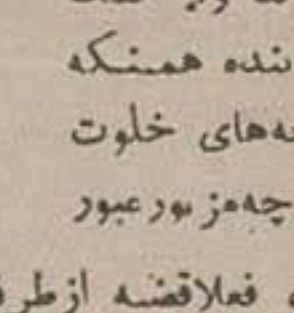 نده همینکه
ه‌های خلوت
چه مزبور عبور
فعلا قضیه از طرف